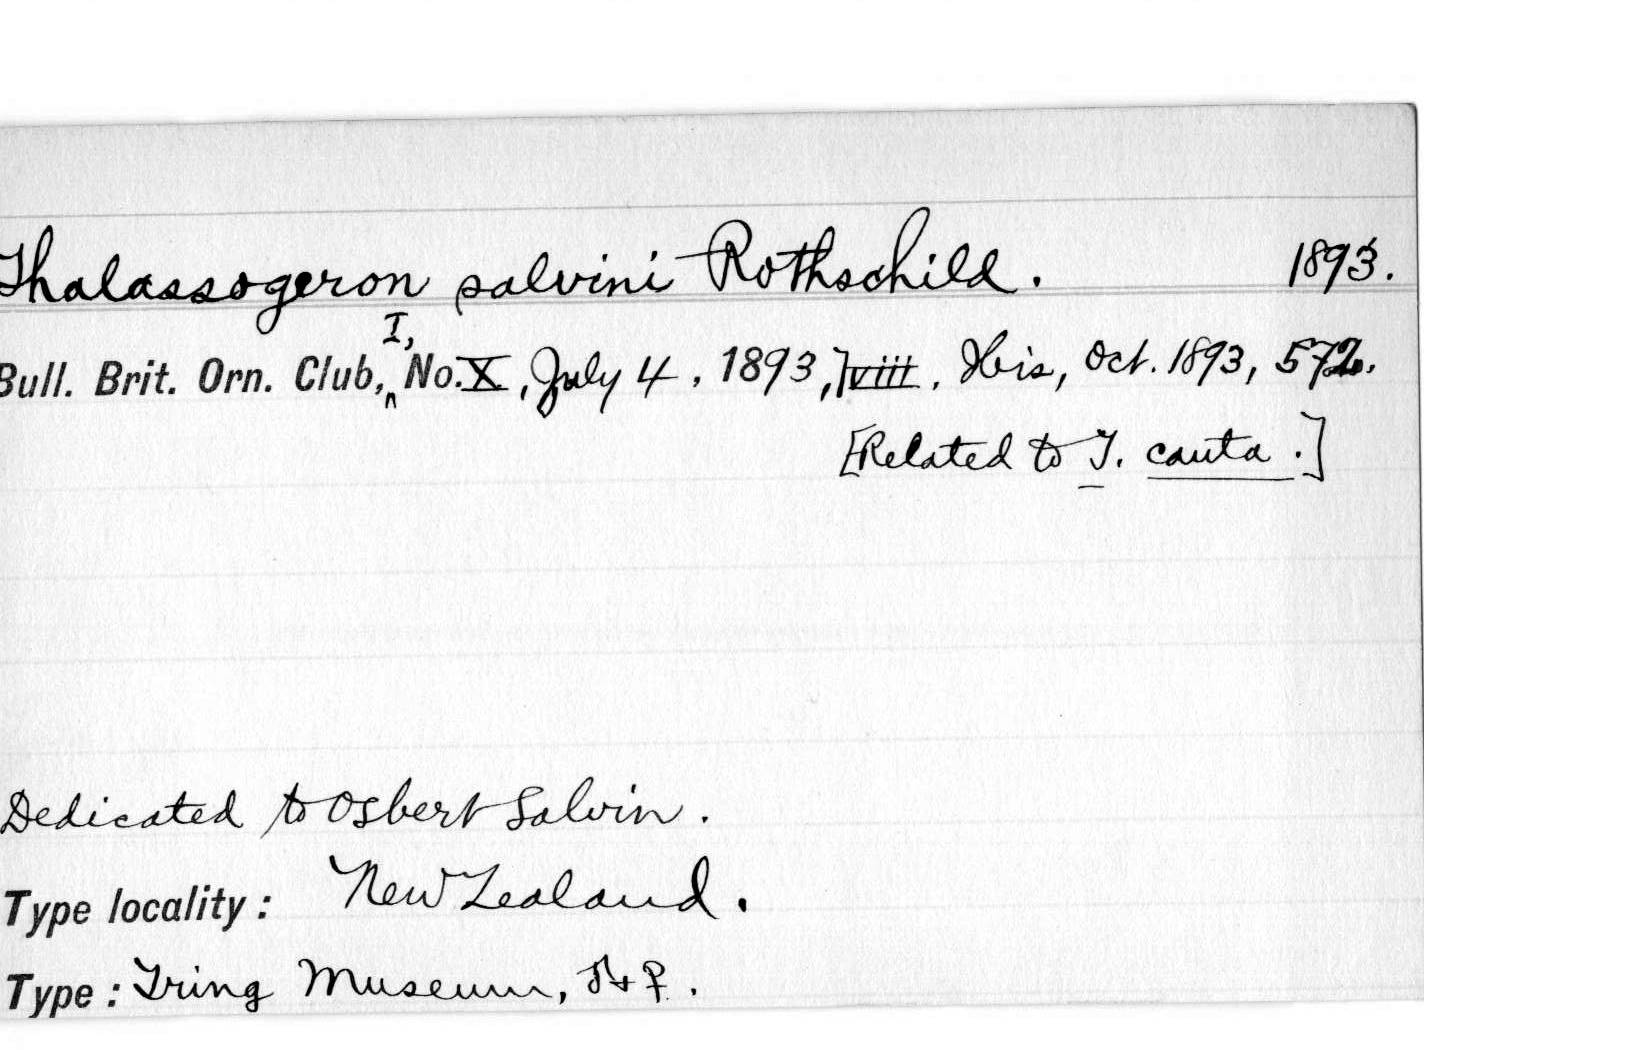 Thalassogeron salvini Rothschild. 1893.
Bull. Brit. Orn. Club, I, No. X, July 4, 1893, lviii. Ibis, Oct. 1893, 572.
[Related to T. cauta.]
Dedicated to Osbert Salvin.
Type locality: New Zealand.
Type: Tring Museum, ♂+♀.